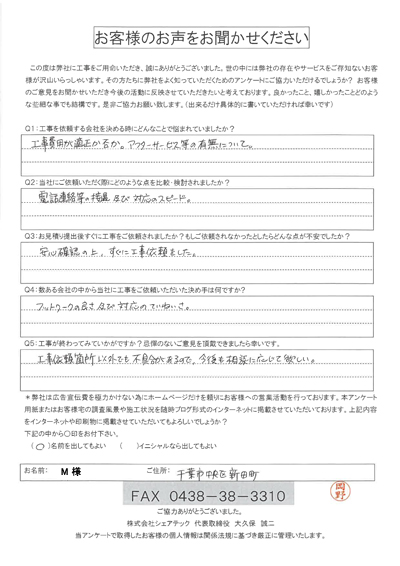 お客様のお声をお聞かせください
この度は弊社に工事をご用命いただき、誠にありがとうございました。世の中には弊社の存在やサービスをご存知ないお客
様が沢山いらっしゃいます。その方たちに弊社をよく知っていただくためのアンケートにご協力いただけるでしょうか? お客様
のご意見をお聞かせいただき今後の活動に反映させていただきたいと考えております。良かったこと、嬉しかったことどのよう
な些細な事でも結構です。是非ご協力お願い致します。(出来るだけ具体的に書いていただければ幸いです)
Q1:工事を依頼する会社を決める時にどんなことで悩まれていましたか?
工事費用が適正か否か。アフターサービス等の有無について。
Q2:当社にご依頼いただく際にどのような点を比較・検討されましたか?
電話連絡等の 及び対応のスピード。
Q3:お見積り提出後すぐに工事をご依頼されましたか?もしご依頼されなかったとしたらどんな点が不安でしたか?
安心確認の上、すぐに工事依頼をした。
Q4:数ある会社の中から当社に工事をご依頼いただいた決め手は何ですか?
フットワークの良さ及び対応のていねいさ。
Q5:工事が終わってみていかがですか?忌憚のないご意見を頂戴できましたら幸いです。
工事依頼箇所以外でも不具合があるので、今後も相談に応じて欲しい。
*弊社は広告宣伝費を極力かけない為にホームページだけを頼りにお客様への営業活動を行っております。本アンケート
用紙またはお客様宅の調査風景や施工状況を随時ブログ形式のインターネットに掲載させていただいております。上記内容
をインターネットや印刷物に掲載させていただいてもよろしいでしょうか?
下記の中から○印をお付下さい。
(○)名前を出してもよい ( )イニシャルなら出してもよい
お名前: M 様 ご住所: 千葉市中央区新田町
FAX 0438-38-3310
岡野
ご協力ありがとうございました。
株式会社シェアテック 代表取締役 大久保 誠二
当アンケートで取得したお客様の個人情報は関係法規に基づき厳正に管理いたします。